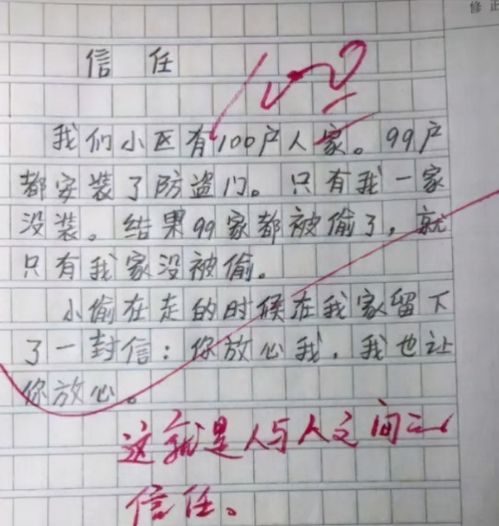 修正
信任
我们小区有100户人家。99户
都安装了防盗门。只有我一家
没装。结果99家都被偷了，就
只有我家没被偷。
小偷在走的时候在我家留下
了一封信：你放心我，我也让
你放心。
这就是人与人之间的
信任。